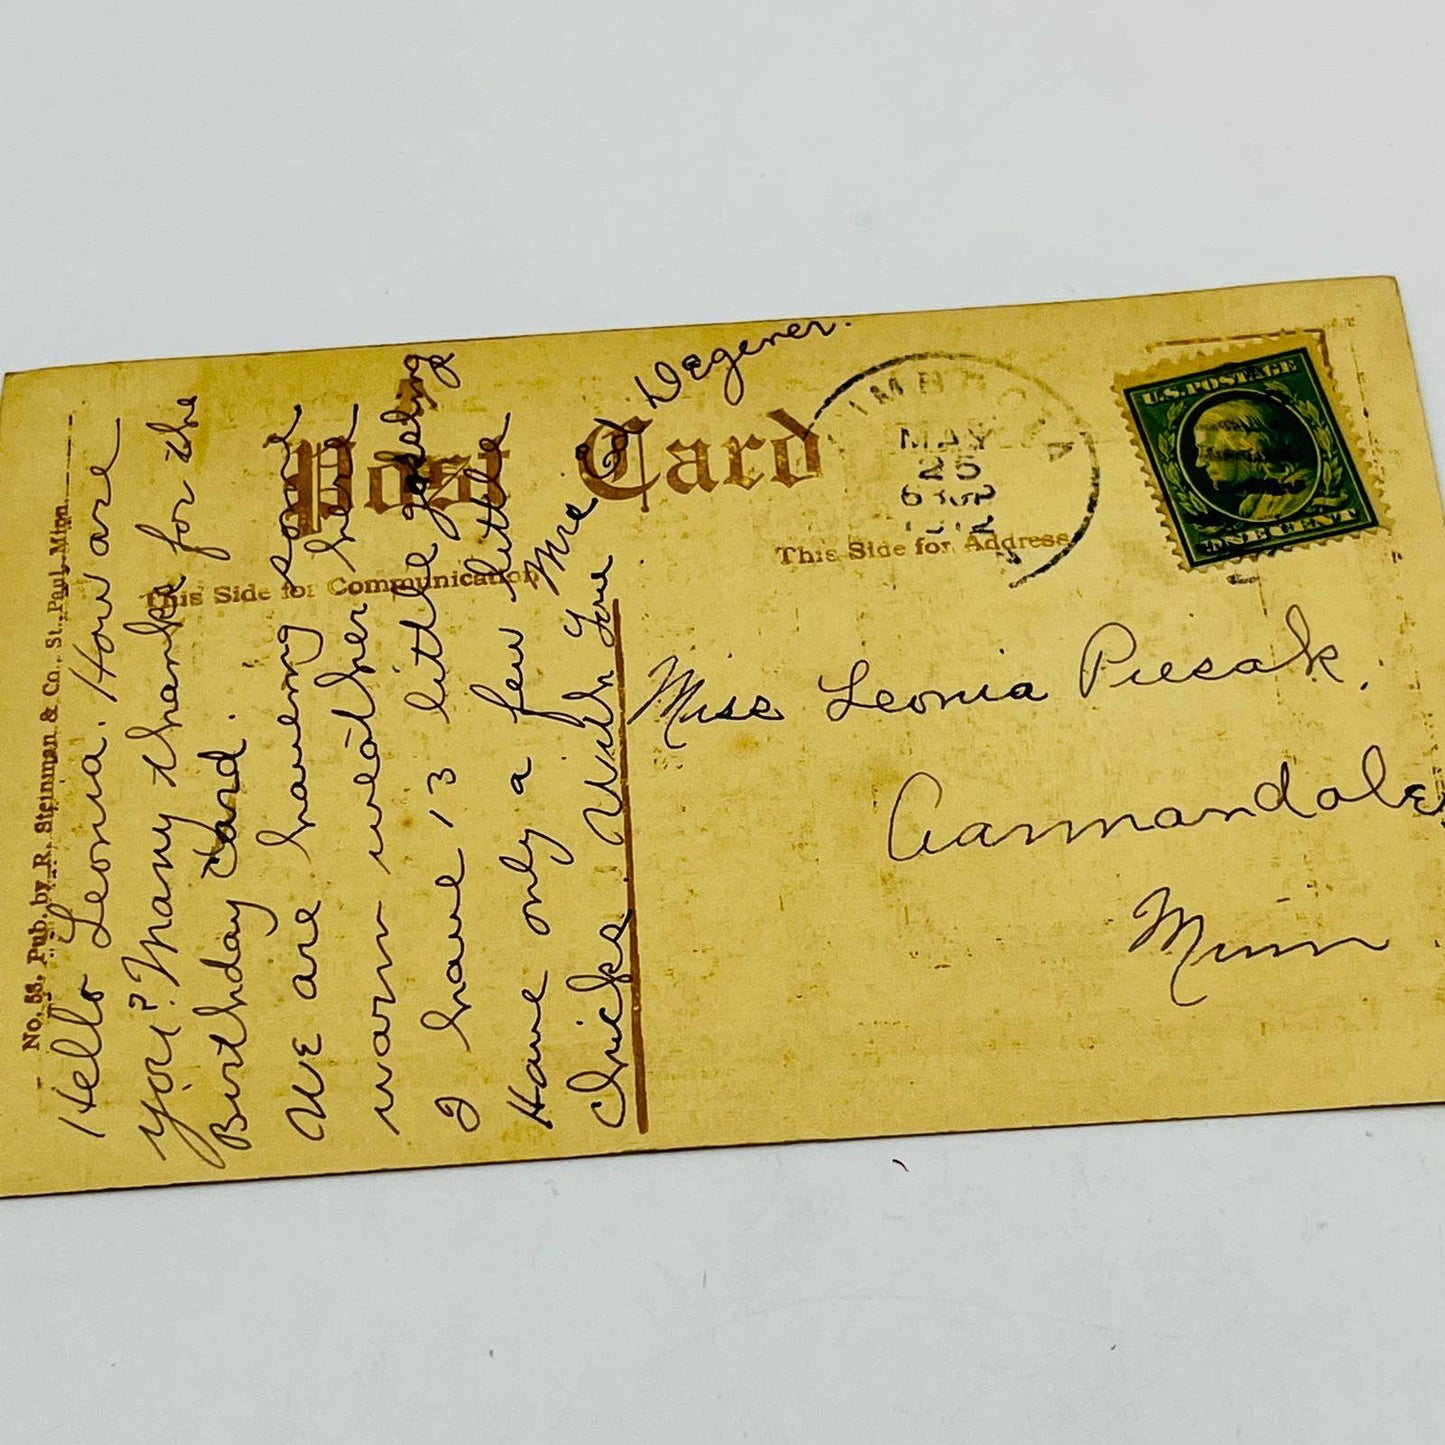 No. 58, Pub. by R. Steinman & Co., St. Paul, Minn.
Post Card
This Side for Communication
This Side for Address
Hello Leonia. How are
you? Many thanks for the
Birthday Card.
We are having some
warm weather here
I have 13 little gosling
Have only a few little
Chicks. With Love
Wegener.
MAY
25
1912
U.S. POSTAGE
ONE CENT
Miss Leonia Piesak.
Aannandale
Minn